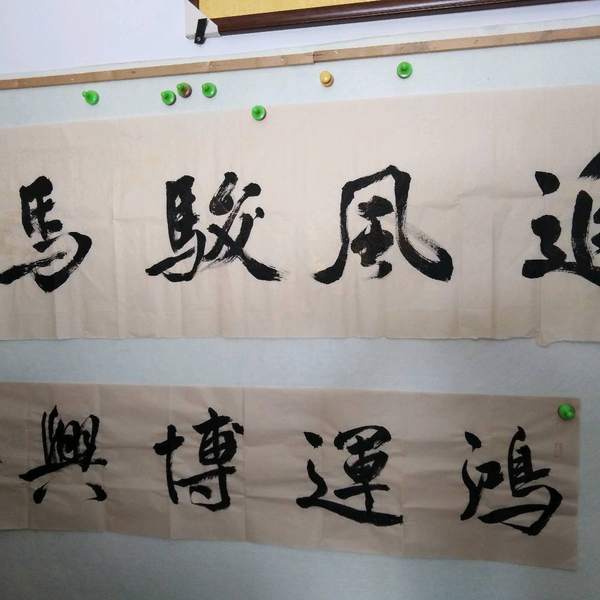 追風駿馬
鴻運博興